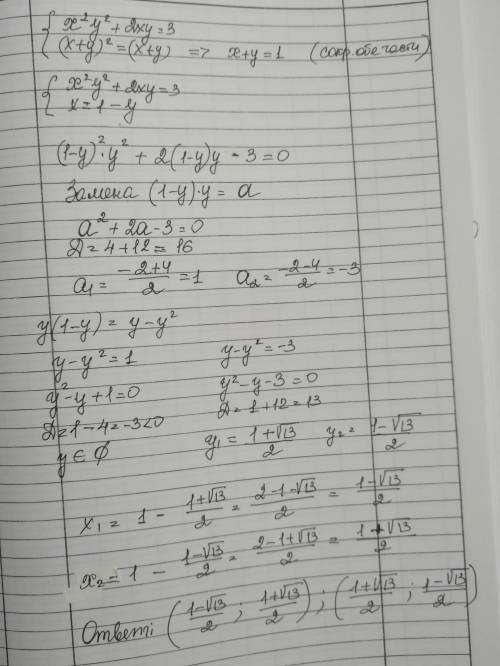 { x²y² + 2xy = 3
(x+y)² = (x+y) => x+y = 1 (сокр. обе части)
{ x²y² + 2xy = 3
x = 1 - y
(1-y)²·y² + 2(1-y)y - 3 = 0
Замена (1-y)·y = a
a² + 2a - 3 = 0
D = 4 + 12 = 16
a₁ = (-2+4)/2 = 1 a₂ = (-2-4)/2 = -3
y(1-y) = y - y²
y - y² = 1 y - y² = -3
y² - y + 1 = 0 y² - y - 3 = 0
D = 1 - 4 = -3 < 0 D = 1 + 12 = 13
y ∈ ∅ y₁ = (1+√13)/2 y₂ = (1-√13)/2
x₁ = 1 - (1+√13)/2 = (2-1-√13)/2 = (1-√13)/2
x₂ = 1 - (1-√13)/2 = (2-1+√13)/2 = (1+√13)/2
Ответ: ((1-√13)/2 ; (1+√13)/2) ; ((1+√13)/2 ; (1-√13)/2)